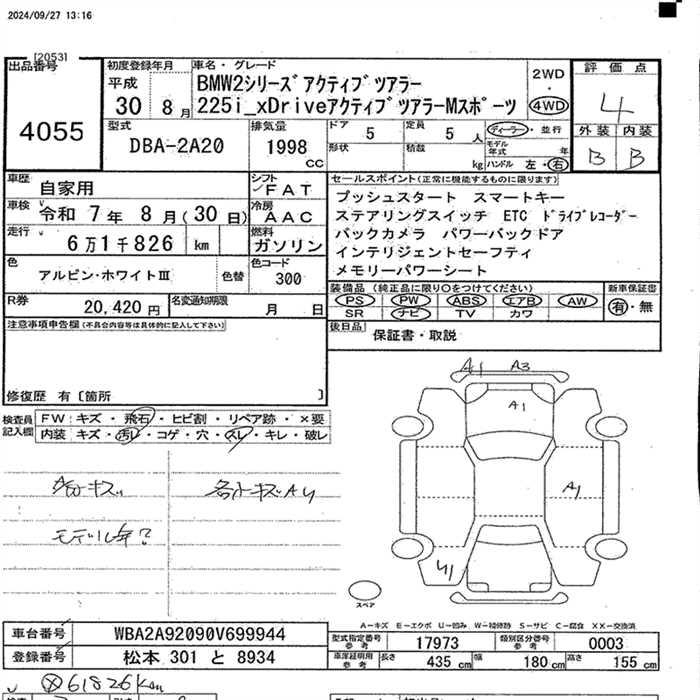 2024/09/27 13:16
[2053]
出品番号
4055
初度登録年月
平成
30 8月
車名・グレード
BMW2シリーズアクティブツアラー
225i_xDriveアクティブツアラーMスポーツ
2WD
・
4WD
評価点
4
外装 内装
B B
型式
DBA-2A20
排気量
1998
cc
ドア 5
定員 5人
形状
積載 kg
ディーラー・並行
モデル年式 年
ハンドル 左・右
車歴
自家用
シフト
FAT
車検
令和 7年 8月(30日)
冷房
AAC
走行
6万1千826 km
燃料
ガソリン
色
アルピン・ホワイトⅢ
色替
色コード
300
R券
20,420円
名変通知期限
月 日
セールスポイント(正常に機能するものに限ります)
プッシュスタート スマートキー
ステアリングスイッチ ETC ドライブレコーダー
バックカメラ パワーバックドア
インテリジェントセーフティ
メモリーパワーシート
装備品(純正品に限り○をつけてください)
新車保証書
PS PW ABS エアB AW
SR ナビ TV カワ
有・無
後日品
保証書・取説
注意事項申告欄(不具合内容等は具体的に記入して下さい)
修復歴 有〔箇所 〕
検査員
記入欄
FW キズ・飛石・ヒビ割・リペア跡・×要
内装 キズ・汚レ・コゲ・穴・スレ・キレ・破レ
各キズ
モデル年?
A1 A3
A1
A1
スペア
A-キズ E-エクボ U-凹み W-補修跡 S-サビ C-腐食 XX-交換済
車台番号
WBA2A92090V699944
登録番号
松本 301 と 8934
型式指定番号
参考
17973
類別区分番号
参考
0003
車庫証明用
参考
長さ 435 cm
幅 180 cm
高さ 155 cm
61826km